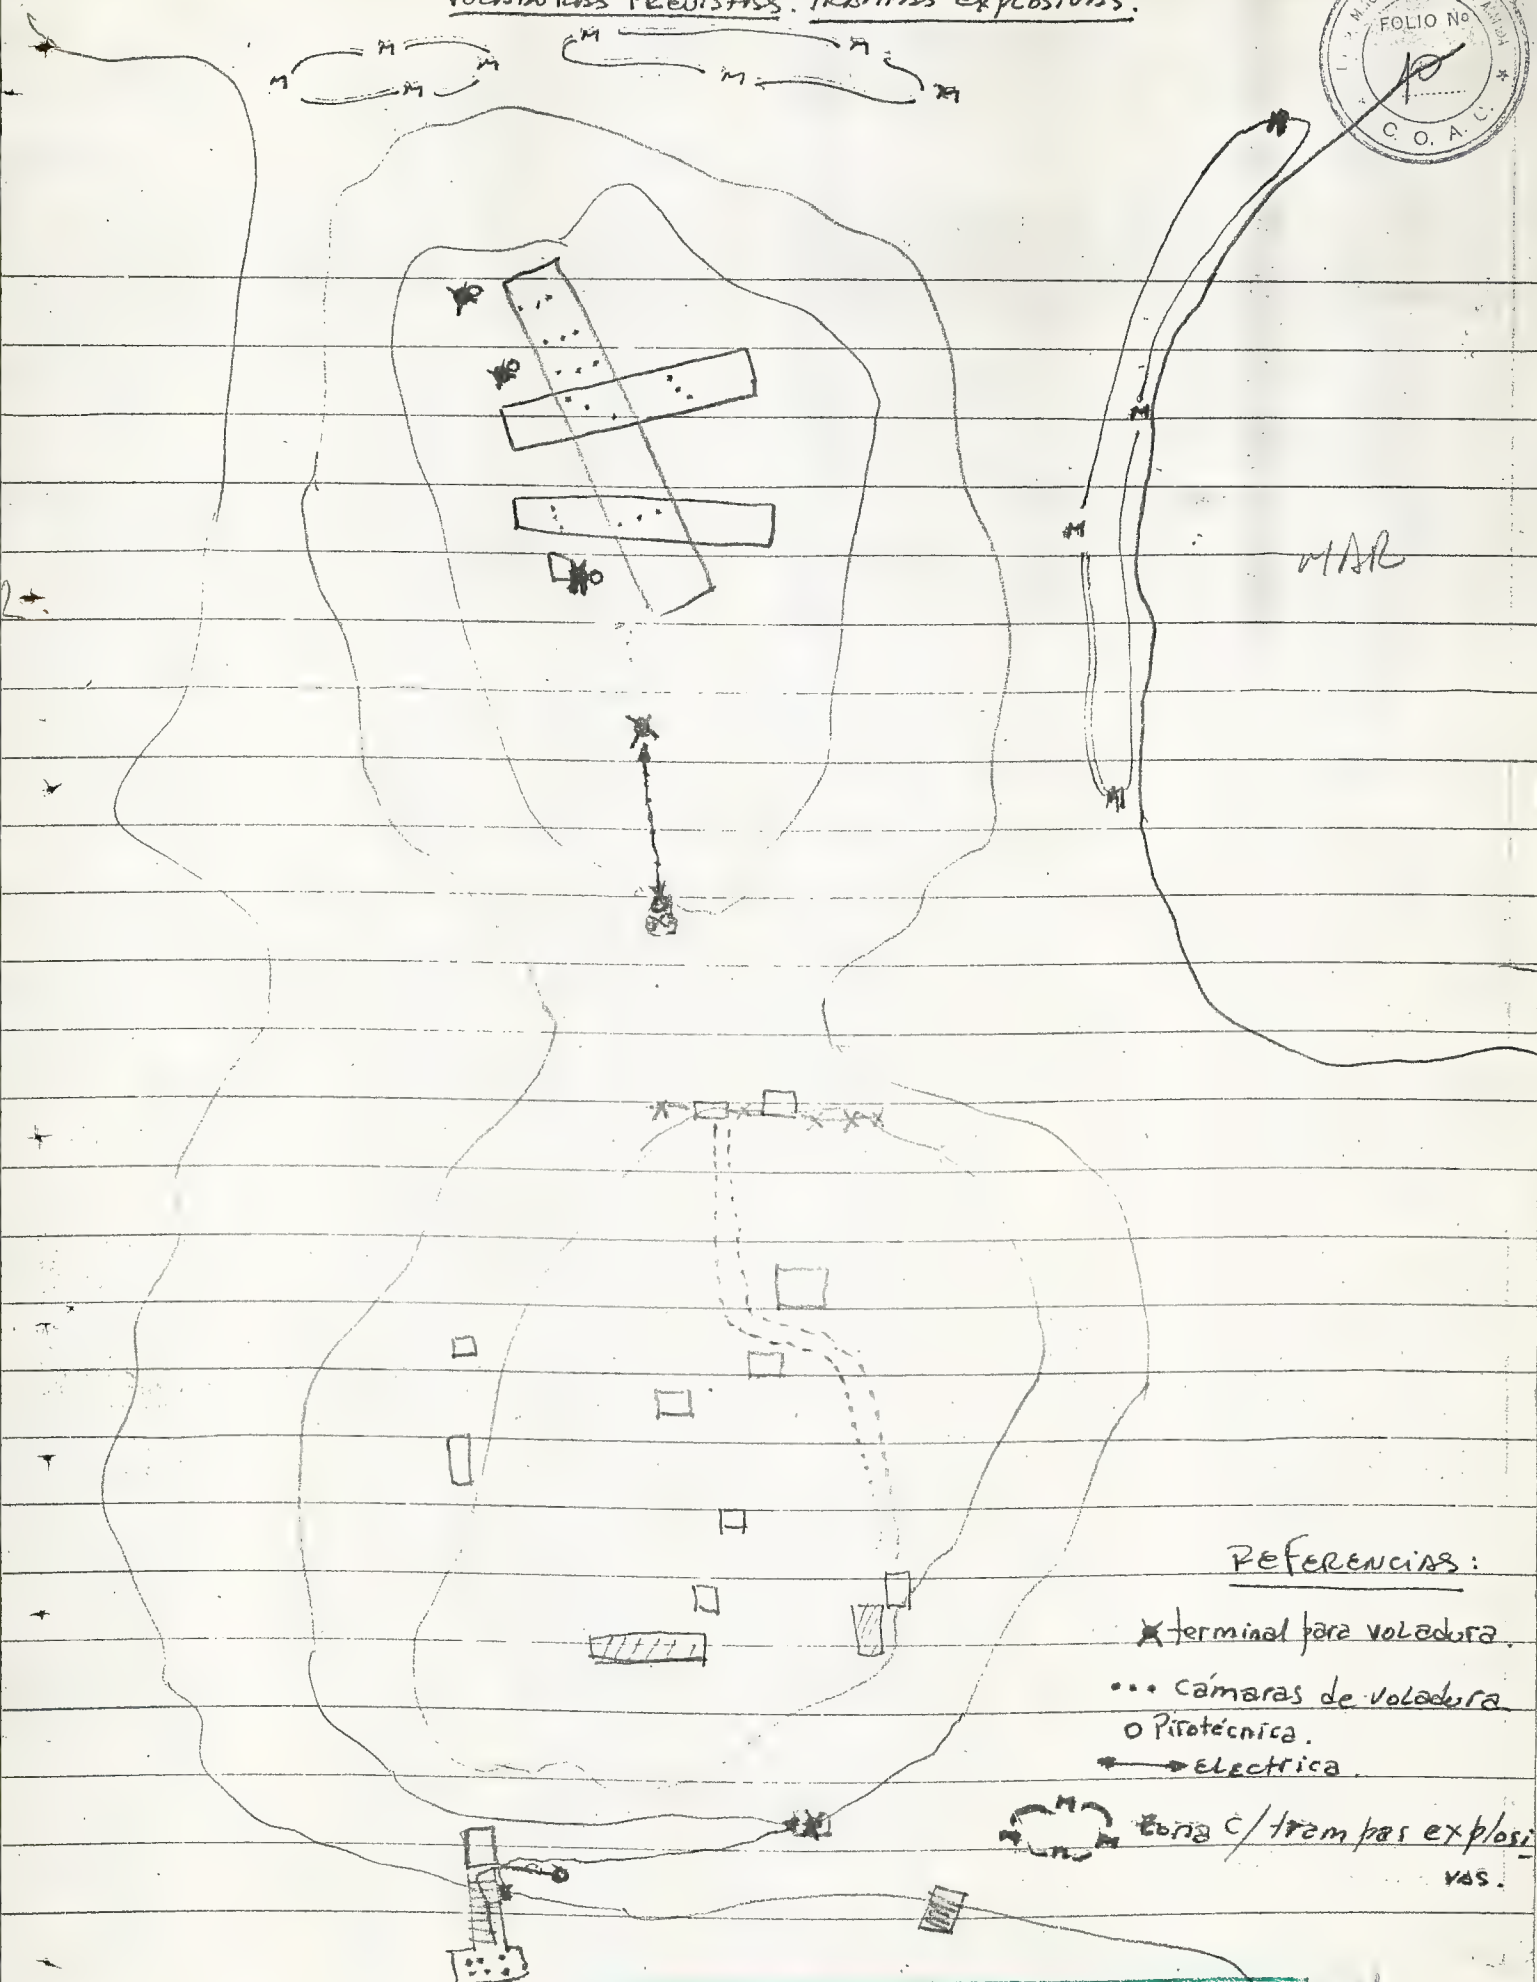 VOLADURAS PREVISTAS. TRAMPAS EXPLOSIVAS.
FOLIO Nº
10
C. O. A. C.
M M M M M
M M M M M
M
M
M
M
MAR
REFERENCIAS:
terminal para voladura.
... cámaras de voladura
o Pirotécnica.
Electrica.
M
zona c/ trampas explosi
vas.